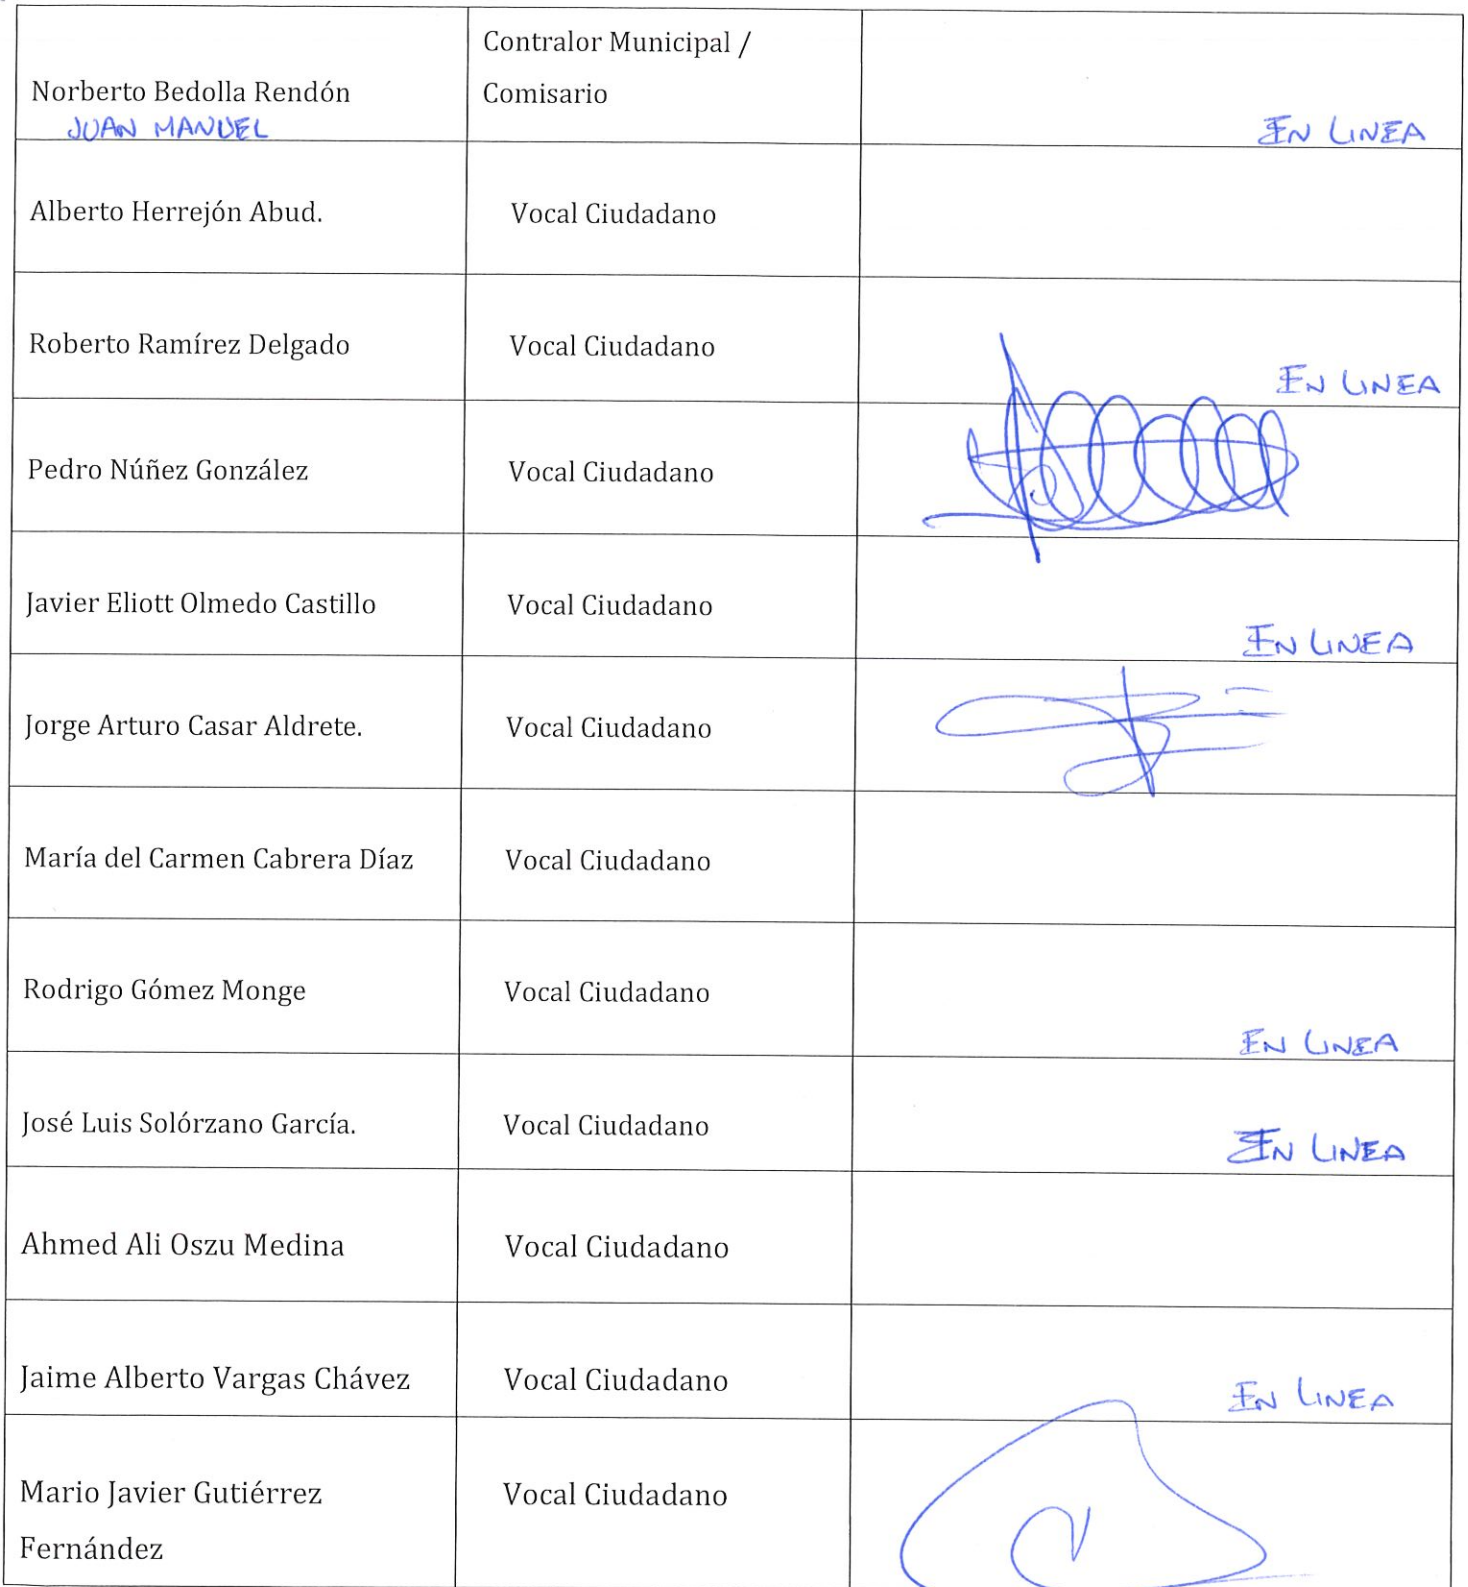 Contralor Municipal /
Norberto Bedolla Rendón
Comisario
JUAN MANUEL
EN LINEA
Alberto Herrejón Abud.
Vocal Ciudadano
Roberto Ramírez Delgado
Vocal Ciudadano
EN LINEA
Pedro Núñez González
Vocal Ciudadano
Javier Eliott Olmedo Castillo
Vocal Ciudadano
EN LINEA
Jorge Arturo Casar Aldrete.
Vocal Ciudadano
María del Carmen Cabrera Díaz
Vocal Ciudadano
Rodrigo Gómez Monge
Vocal Ciudadano
EN LINEA
José Luis Solórzano García.
Vocal Ciudadano
EN LINEA
Ahmed Ali Oszu Medina
Vocal Ciudadano
Jaime Alberto Vargas Chávez
Vocal Ciudadano
EN LINEA
Mario Javier Gutiérrez
Fernández
Vocal Ciudadano